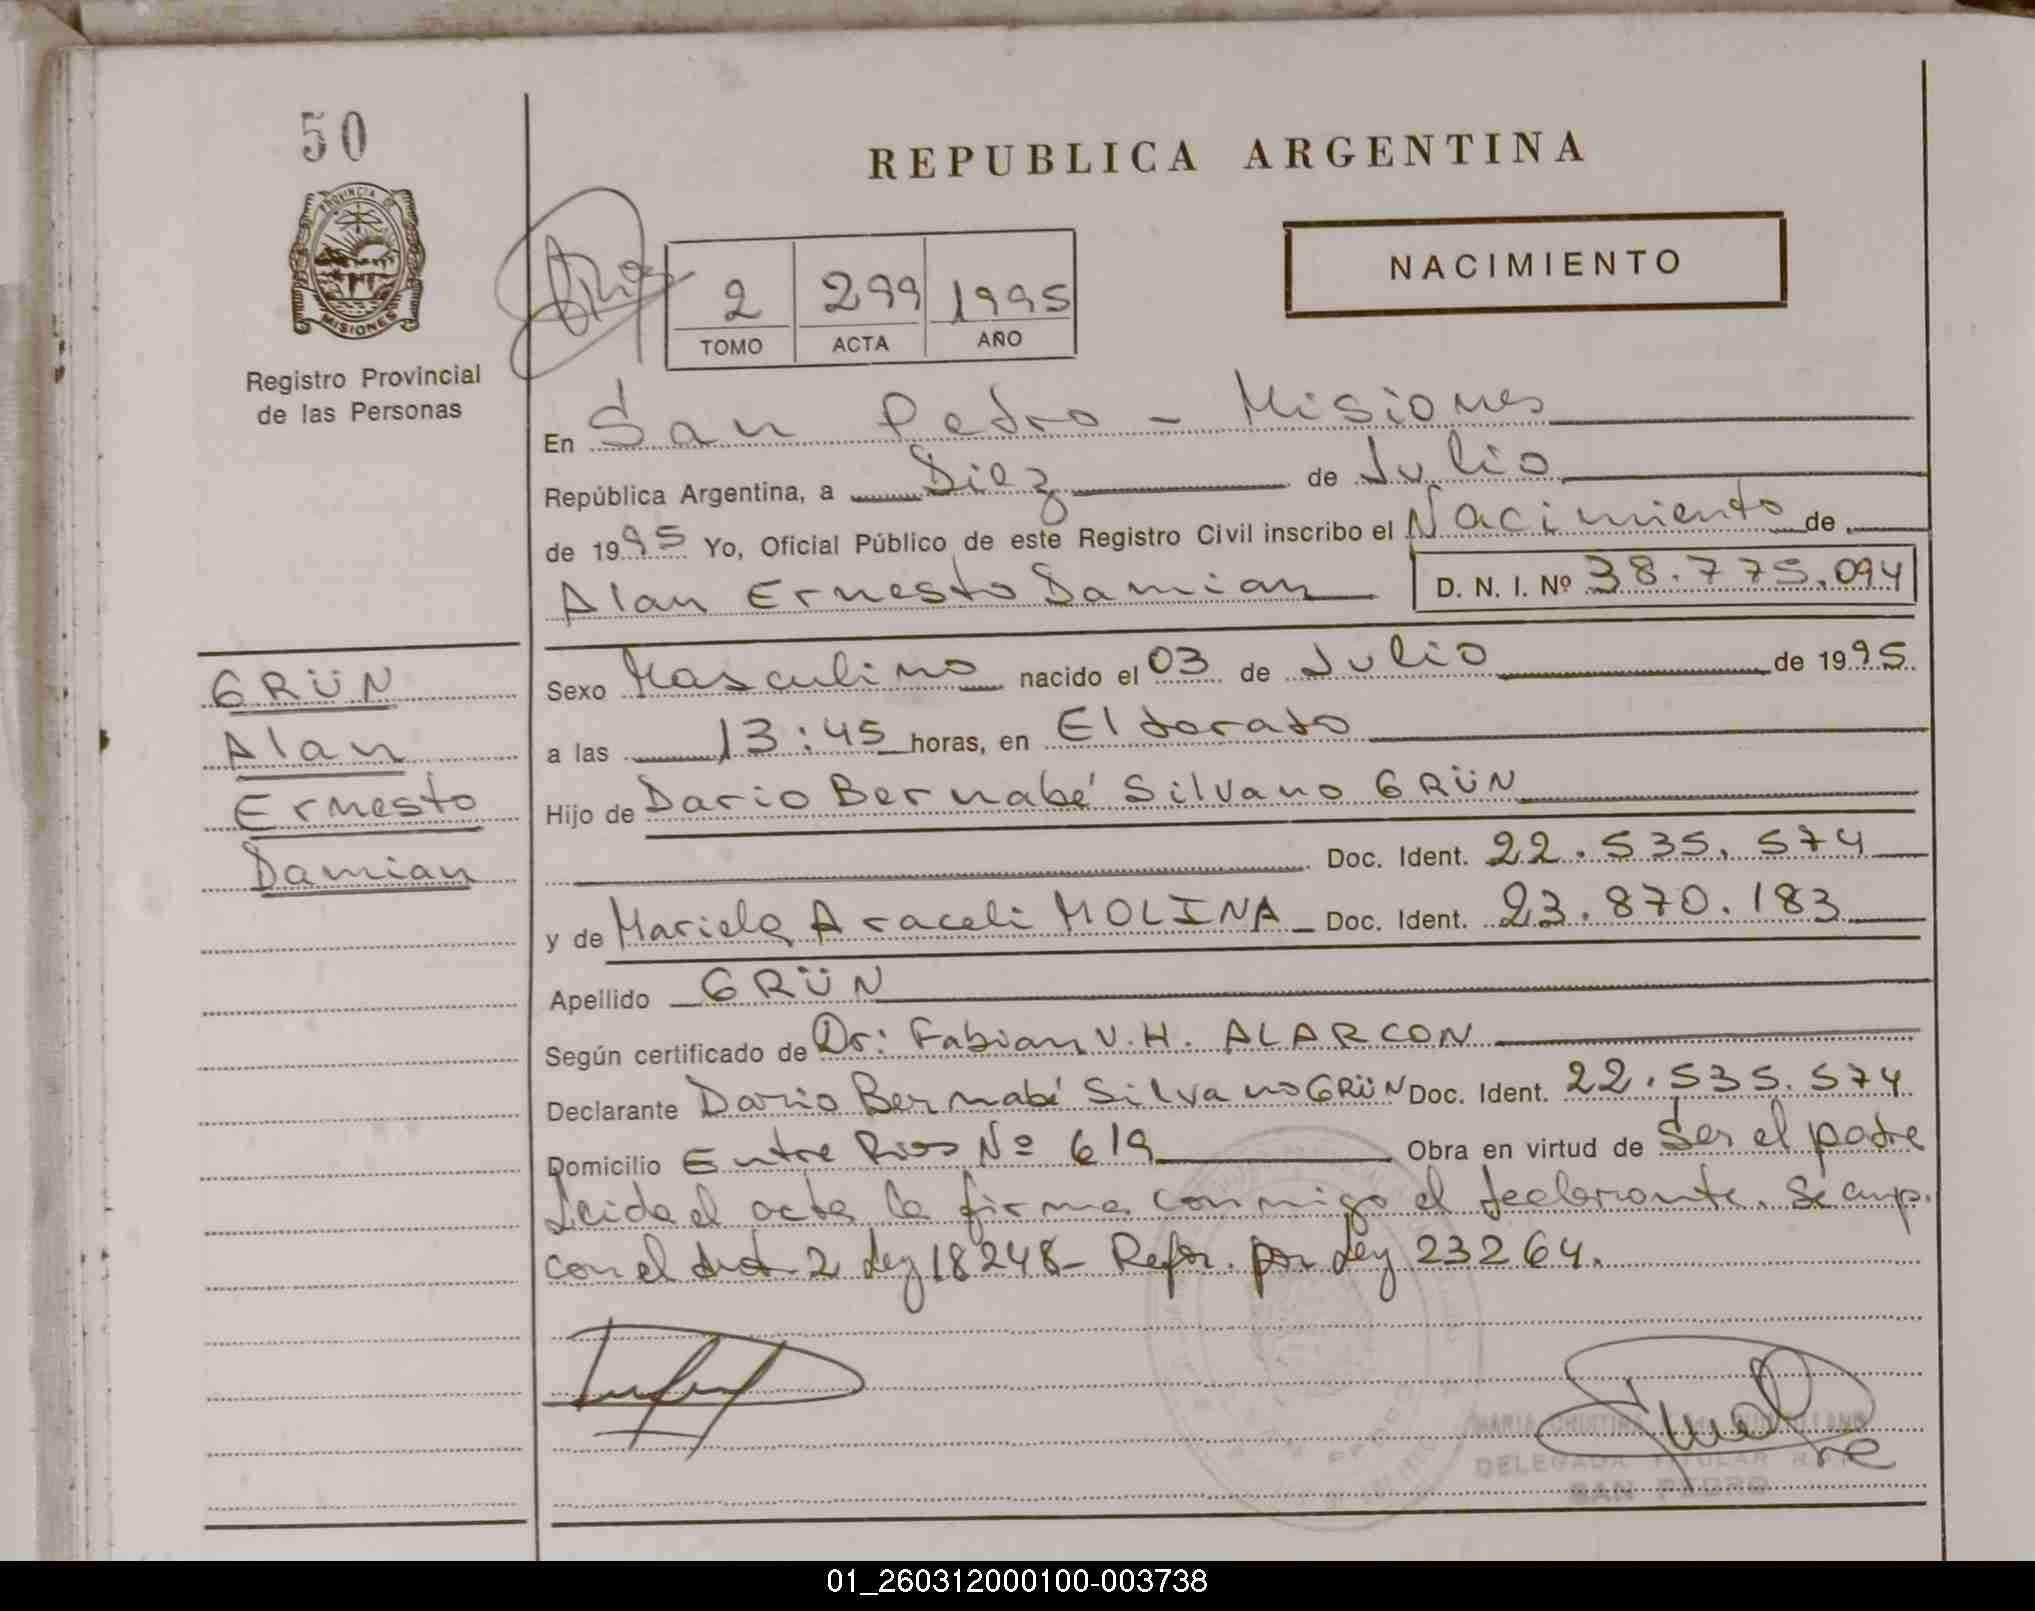 50
PROVINCIA DE
MISIONES
Registro Provincial
de las Personas
REPUBLICA ARGENTINA
NACIMIENTO
2 299 1995
TOMO ACTA AÑO
En San Pedro - Misiones
República Argentina, a Diez de Julio
de 1995 Yo, Oficial Público de este Registro Civil inscribo el Nacimiento de
Alan Ernesto Damian D. N. I. Nº 38.775.094
GRÜN
Alan
Ernesto
Damian
Sexo Masculino nacido el 03 de Julio de 1995
a las 13:45 horas, en Eldorado
Hijo de Dario Bernabé Silvano GRÜN
Doc. Ident. 22.535.574
y de Mariela Araceli MOLINA Doc. Ident. 23.870.183
Apellido GRÜN
Según certificado de Dr: Fabian V.H. ALARCON
Declarante Dario Bernabé Silvano GRÜN Doc. Ident. 22.535.574
Domicilio Entre Rios Nº 619 Obra en virtud de Ser el padre
Leida el acta la firma conmigo el declarante. Se cump.
con el Art. 2 Ley 18248- Refor. por Ley 23264.
MARIA CRISTINA
DELEGADA TITULAR
SAN PEDRO
01_260312000100-003738